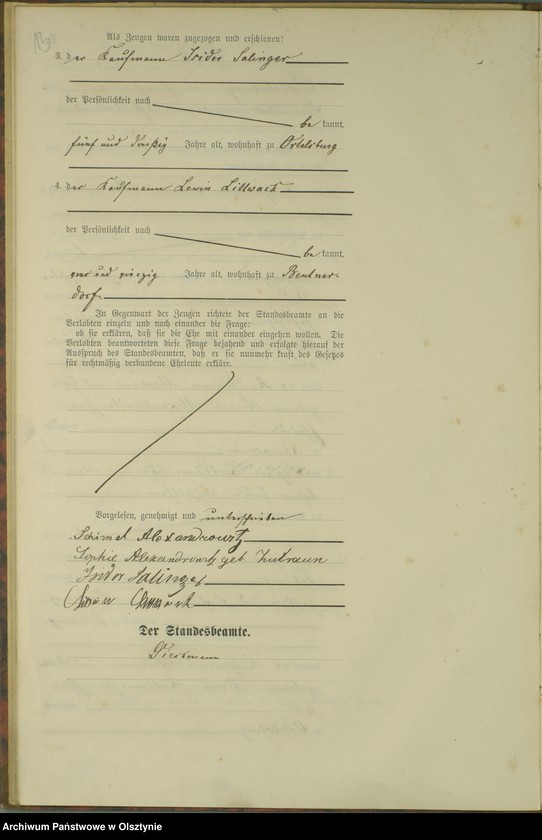 Als Zeugen waren zugezogen und erschienen:
3. der Kaufmann Isidor Salinger
der Persönlichkeit nach
be kannt,
fünf und dreißig Jahre alt, wohnhaft zu Ortelsburg
4. der Kaufmann Lewin Littwack
der Persönlichkeit nach
be kannt,
vier und vierzig Jahre alt, wohnhaft zu Beutner-
dorf.
In Gegenwart der Zeugen richtete der Standesbeamte an die
Verlobten einzeln und nach einander die Frage:
ob sie erklären, daß sie die Ehe mit einander eingehen wollen. Die
Verlobten beantworteten diese Frage bejahend und erfolgte hierauf der
Ausspruch des Standesbeamten, daß er sie nunmehr kraft des Gesetzes
für rechtmäßig verbundene Eheleute erkläre.
Vorgelesen, genehmigt und unterschrieben
Alexandrowitz
Sophie Alexandrowitz geb
Isidor Salinger
Der Standesbeamte.
Archiwum Państwowe w Olsztynie